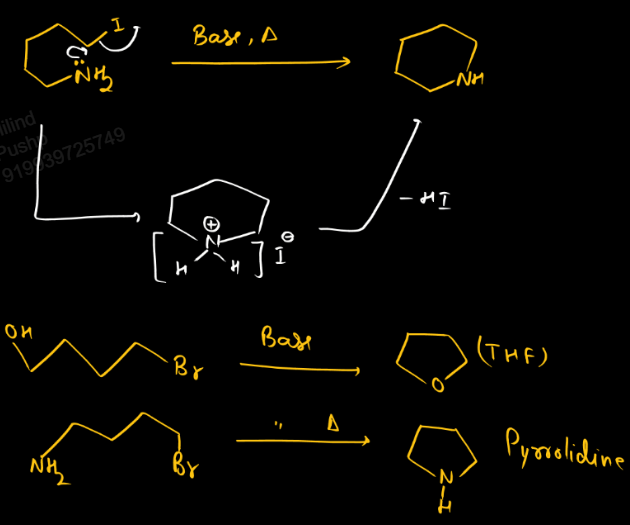 I
Base, Δ
NH₂
NH
ilind
Pushp
919939725749
⊕
N
H H
I⊖
- HI
OH
Br
Base
O
(THF)
NH₂
Br
" Δ
N
H
Pyrrolidine